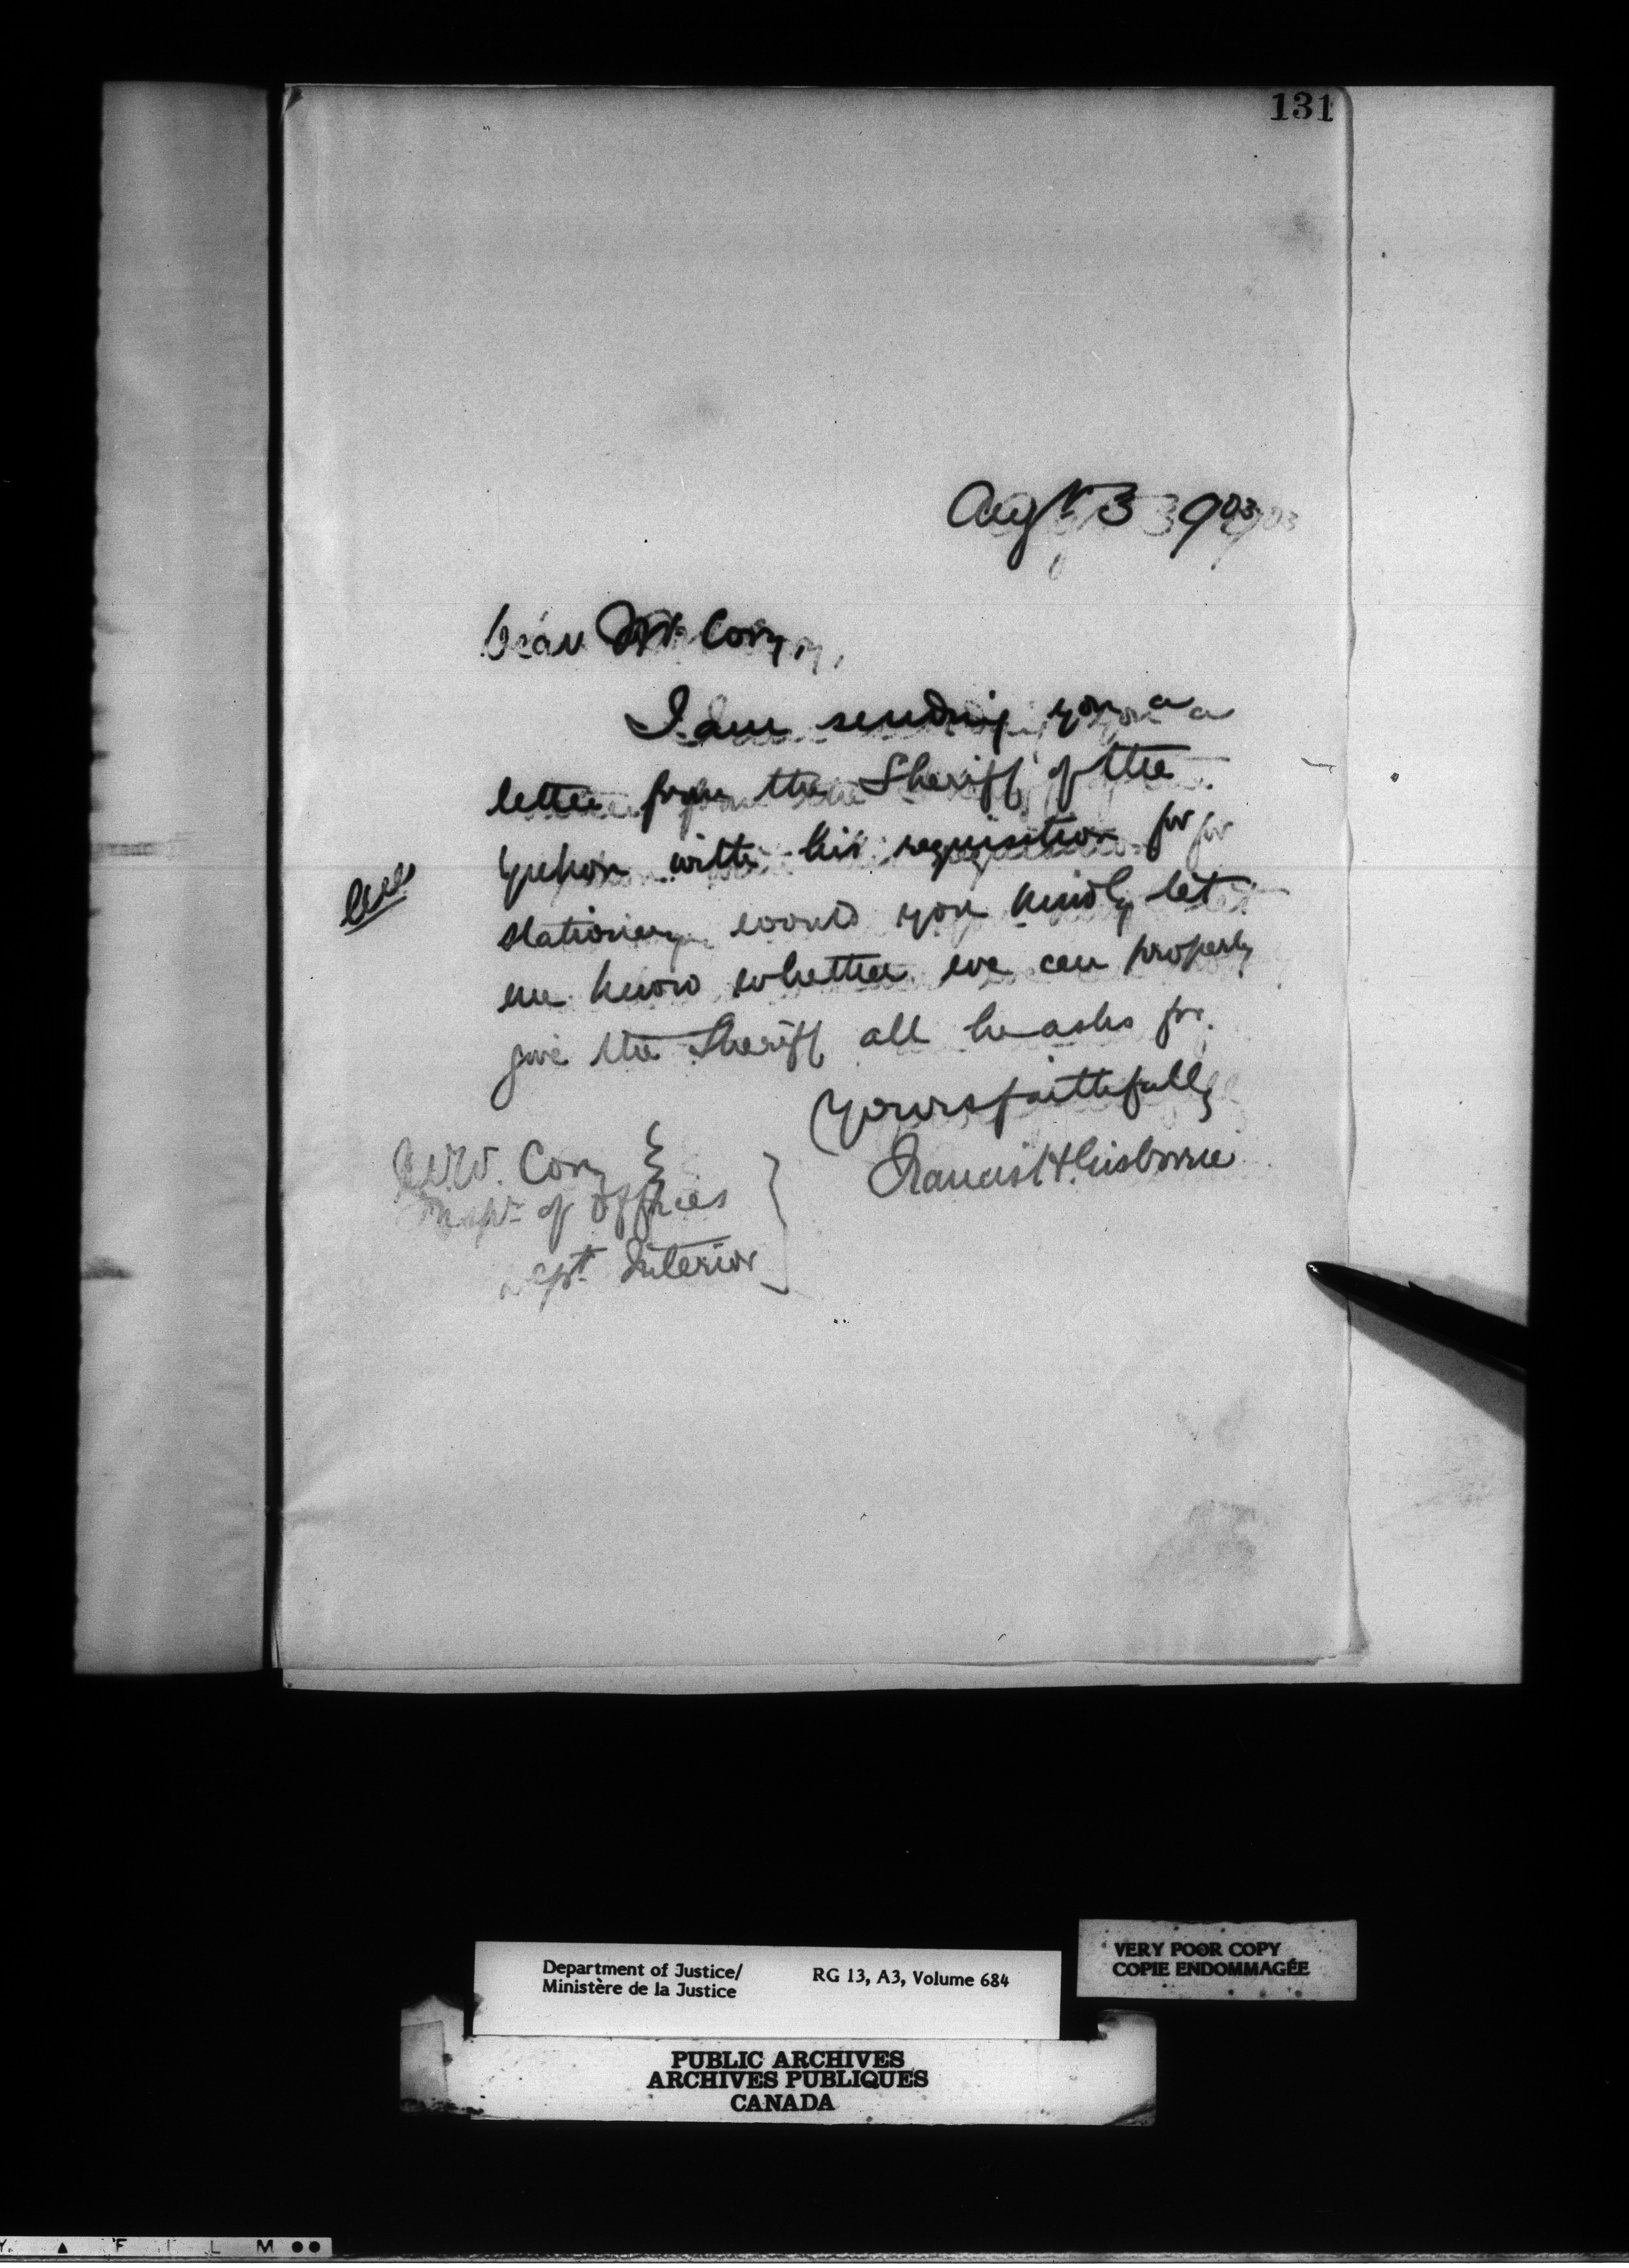 131
Augt 3 1903
Dear Mr. Cory,
I am sending you a
letter from the Sheriff of the
Yukon with his requisition for
stationery would you kindly let
me know whether we can properly
give the Sheriff all he asks for.
Yours faithfully
Francis H. Gisborne
W.W. Cory
Inspr of Offices
Dept. Interior
Department of Justice/
Ministère de la Justice
RG 13, A3, Volume 684
VERY POOR COPY
COPIE ENDOMMAGÉE
PUBLIC ARCHIVES
ARCHIVES PUBLIQUES
CANADA
F I L M